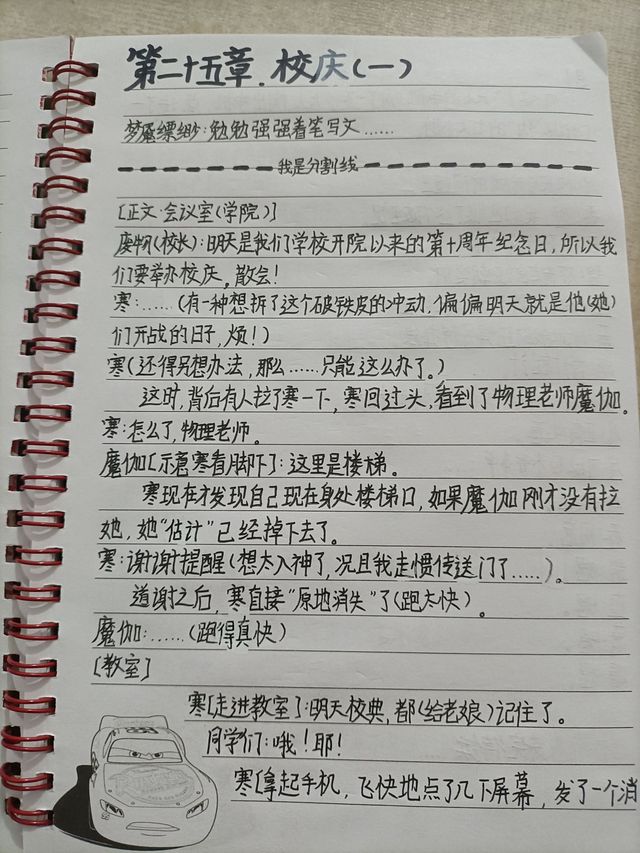 第二十五章.校庆(一)
梦魇缥缈:勉勉强强着笔写文……
我是分割线
[正文·会议室(学院)]
废物(校长):明天是我们学校开院以来的第十周年纪念日,所以我
们要举办校庆,散会!
寒:……(有一种想拆了这个破铁皮的冲动,偏偏明天就是他(她)
们开战的日子,烦!)
寒(还得另想办法,那么……只能这么办了。)
这时,背后有人拉了寒一下,寒回过头,看到了物理老师魔伽。
寒:怎么了,物理老师。
魔伽[示意寒看脚下]:这里是楼梯。
寒现在才发现自己现在身处楼梯口,如果魔伽刚才没有拉
她,她“估计”已经掉下去了。
寒:谢谢提醒(想太入神了,况且我走惯传送门了……)。
道谢之后,寒直接“原地消失”了(跑太快)。
魔伽:……(跑得真快)
[教室]
寒[走进教室]:明天校典,都(给老娘)记住了。
同学们:哦!耶!
寒[拿起手机,飞快地点了几下屏幕,发了一个消